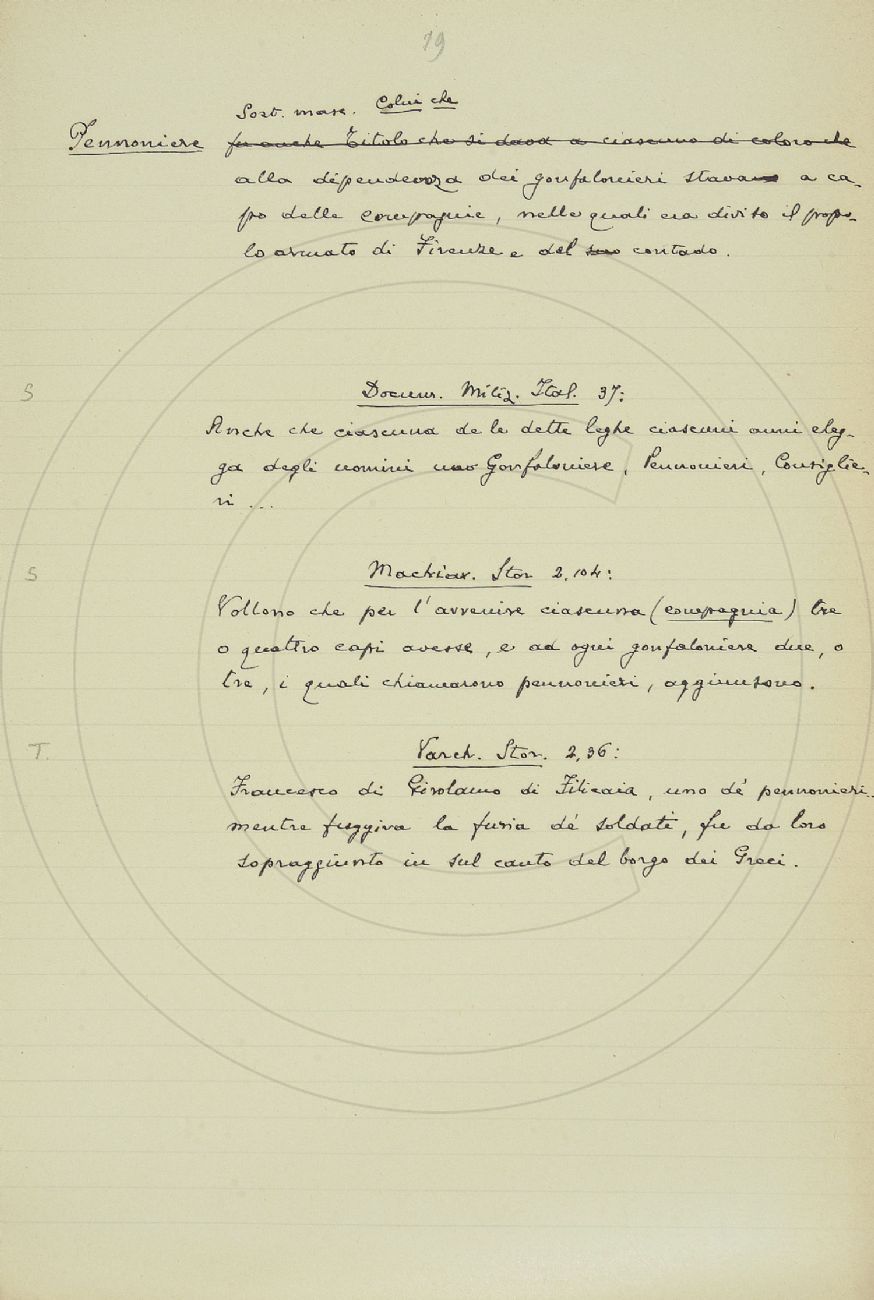 19
Sost. masc. Colui che
Pennoniere fu anche Titolo che si dava a ciascuno di coloro che
alla dipendenza dei gonfalonieri stava a ca-
po delle compagnie, nelle quali era diviso il popo-
lo armato di Firenze e del suo contado.
S Docum. Miliz. Ital. 37:
Anche che ciascuna de le dette leghe ciascuni anni eleg-
ga degli uomini uno Gonfaloniere, Pennonieri, Consiglie-
ri ...
S Machiav. Stor 2,104:
Vollono che per l'avvenire ciascuna (compagnia) tre
o quattro capi avesse, e ad ogni gonfaloniere due, o
tre, i quali chiamarono pennonieri, aggiunsono.
T. Varch. Stor. 2,36:
Francesco di Girolamo di Filicaia, uno de' pennonieri
mentre fuggiva la furia de' soldati, fu da loro
sopraggiunto in sul canto del borgo dei Greci.